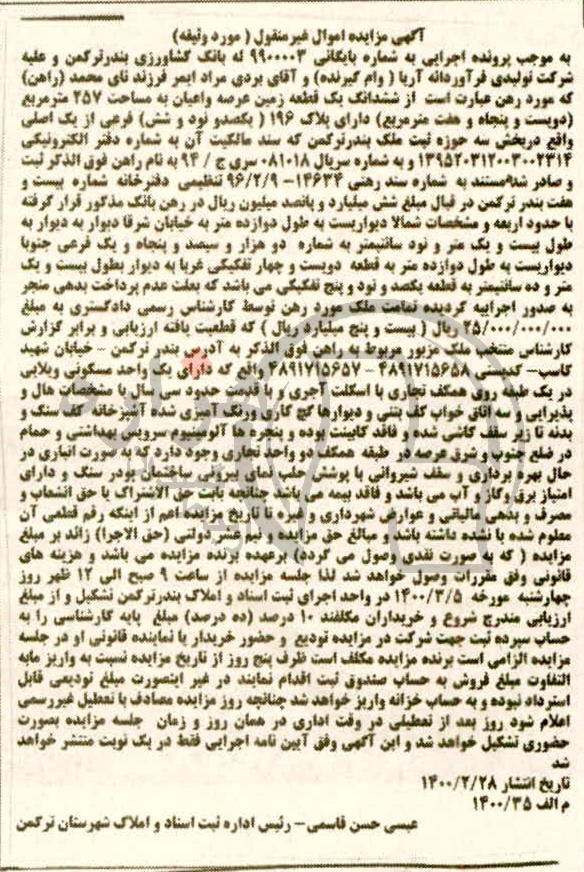 آگهی مزایده اموال غیرمنقول ( مورد وثیقه)
به موجب پرونده اجرایی به شماره بایگانی ۹۹۰۰۰۰۳ له بانک کشاورزی بندرترکمن و علیه
شرکت تولیدی فرآوردانه آریا ( وام گیرنده) و آقای بردی مراد ایمر فرزند نای محمد (راهن)
که مورد رهن عبارت است از ششدانگ یک قطعه زمین عرصه واعیان به مساحت ۲۵۷ مترمربع
(دویست و پنجاه و هفت مترمربع) دارای پلاک ۱۹۶ ( یکصدو نود و شش) فرعی از یک اصلی
واقع دربخش سه حوزه ثبت ملک بندرترکمن که سند مالکیت آن به شماره دفتر الکترونیکی
۱۳۹۵۲۰۳۱۲۰۰۳۰۰۲۳۱۴ و به شماره سریال ۰۸۱۰۱۸ سری ج / ۹۴ به نام راهن فوق الذکر ثبت
و صادر شده‌مستند به شماره سند رهنی ۱۴۶۳۴- ۹۶/۲/۹ تنظیمی دفترخانه شماره بیست و
هفت بندر ترکمن در قبال مبلغ شش میلیارد و پانصد میلیون ریال در رهن بانک مذکور قرار گرفته
با حدود اربعه و مشخصات شمالا دیواریست به طول دوازده متر به خیابان شرقا دیوار به دیوار به
طول بیست و یک متر و نود سانتیمتر به شماره دو هزار و سیصد و پنجاه و یک فرعی جنوبا
دیواریست به طول دوازده متر به قطعه دویست و چهار تفکیکی غربا به دیوار بطول بیست و یک
متر و ده سانتیمتر به قطعه یکصد و نود و پنج تفکیکی می باشد که بعلت عدم پرداخت بدهی منجر
به صدور اجراییه گردیده تمامت ملک مورد رهن توسط کارشناس رسمی دادگستری به مبلغ
۲۵/۰۰۰/۰۰۰/۰۰۰ ریال ( بیست و پنج میلیارد ریال ) که قطعیت یافته ارزیابی و برابر گزارش
کارشناس منتخب ملک مزبور مربوط به راهن فوق الذکر به آدرس بندر ترکمن - خیابان شهید
کاسب- کدپستی ۴۸۹۱۷۱۵۶۵۸ - ۴۸۹۱۷۱۵۶۵۷ واقع که دارای یک واحد مسکونی ویلایی
در یک طبقه روی همکف تجاری با اسکلت آجری و با قدمت حدود سی سال با مشخصات هال و
پذیرایی و سه اتاق خواب کف بتنی و دیوارها گچ کاری ورنگ آمیزی شده آشپزخانه کف سنگ و
بدنه تا زیر سقف کاشی شده و فاقد کابینت بوده و پنجره ها آلومینیوم سرویس بهداشتی و حمام
در ضلع جنوب و شرق عرصه در طبقه همکف دو واحد تجاری وجود دارد که به صورت انباری در
حال بهره برداری و سقف شیروانی با پوشش حلب نمای بیرونی ساختمان پودر سنگ و دارای
امتیاز برق وگاز و آب می باشد و فاقد بیمه می باشد چنانچه بابت حق الاشتراک یا حق انشعاب و
مصرف و بدهی مالیاتی و عوارض شهرداری و غیره تا تاریخ مزایده اعم از اینکه رقم قطعی آن
معلوم شده یا نشده داشته باشد و مبالغ حق مزایده و نیم عشر دولتی (حق الاجرا) زائد بر مبلغ
مزایده ( که به صورت نقدی وصول می گردد) برعهده برنده مزایده می باشد و هزینه های
قانونی وفق مقررات وصول خواهد شد لذا جلسه مزایده از ساعت ۹ صبح الی ۱۲ ظهر روز
چهارشنبه مورخه ۱۴۰۰/۳/۵ در واحد اجرای ثبت اسناد و املاک بندرترکمن تشکیل و از مبلغ
ارزیابی مندرج شروع و خریداران مکلفند ۱۰ درصد (ده درصد) مبلغ پایه کارشناسی را به
حساب سپرده ثبت جهت شرکت در مزایده تودیع و حضور خریدار یا نماینده قانونی او در جلسه
مزایده الزامی است برنده مزایده مکلف است ظرف پنج روز از تاریخ مزایده نسبت به واریز مابه
التفاوت مبلغ فروش به حساب صندوق ثبت اقدام نمایند در غیر اینصورت مبلغ تودیعی قابل
استرداد نبوده و به حساب خزانه واریز خواهد شد چنانچه روز مزایده مصادف با تعطیل غیررسمی
اعلام شود روز بعد از تعطیلی در وقت اداری در همان روز و زمان جلسه مزایده بصورت
حضوری تشکیل خواهد شد و این آگهی وفق آیین نامه اجرایی فقط در یک نوبت منتشر خواهد
شد
تاریخ انتشار ۱۴۰۰/۲/۲۸
م الف ۱۴۰۰/۳۵
عیسی حسن قاسمی- رئیس اداره ثبت اسناد و املاک شهرستان ترکمن